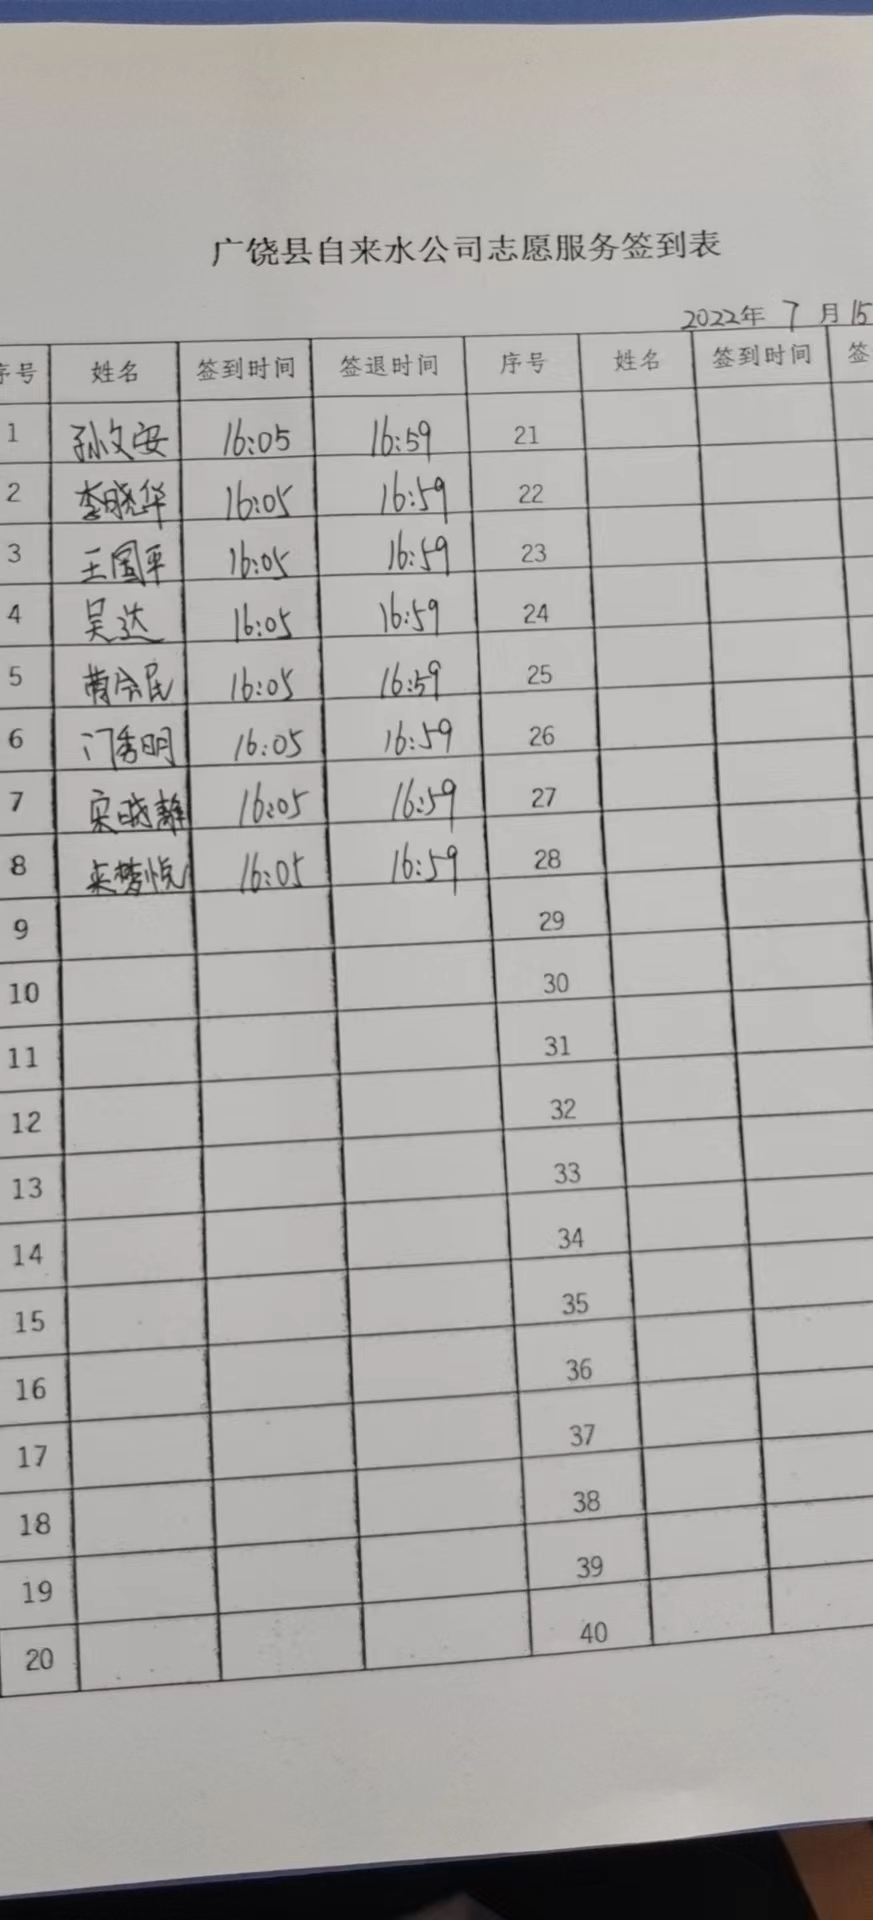 广饶县自来水公司志愿服务签到表
2022年 7 月 15
序号 姓名 签到时间 签退时间 序号 姓名 签到时间 签
1 孙文安 16:05 16:59 21
2 李晓华 16:05 16:59 22
3 王国平 16:05 16:59 23
4 吴达 16:05 16:59 24
5 16:05 16:59 25
6 门秀明 16:05 16:59 26
7 宋晓静 16:05 16:59 27
8 16:05 16:59 28
9 29
10 30
11 31
12 32
13 33
14 34
15 35
16 36
17 37
18 38
19 39
20 40